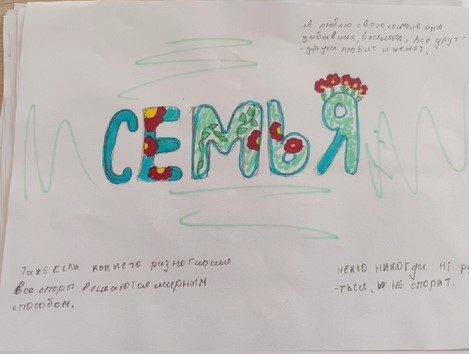 Я люблю свою семью она
забавная, веселая, все друг-
-друга любят и ценят.
СЕМЬЯ
Таже если какието разногласия
все споры решаются мирным
способом.
некто никогда не ру
-ться, и не спорят.